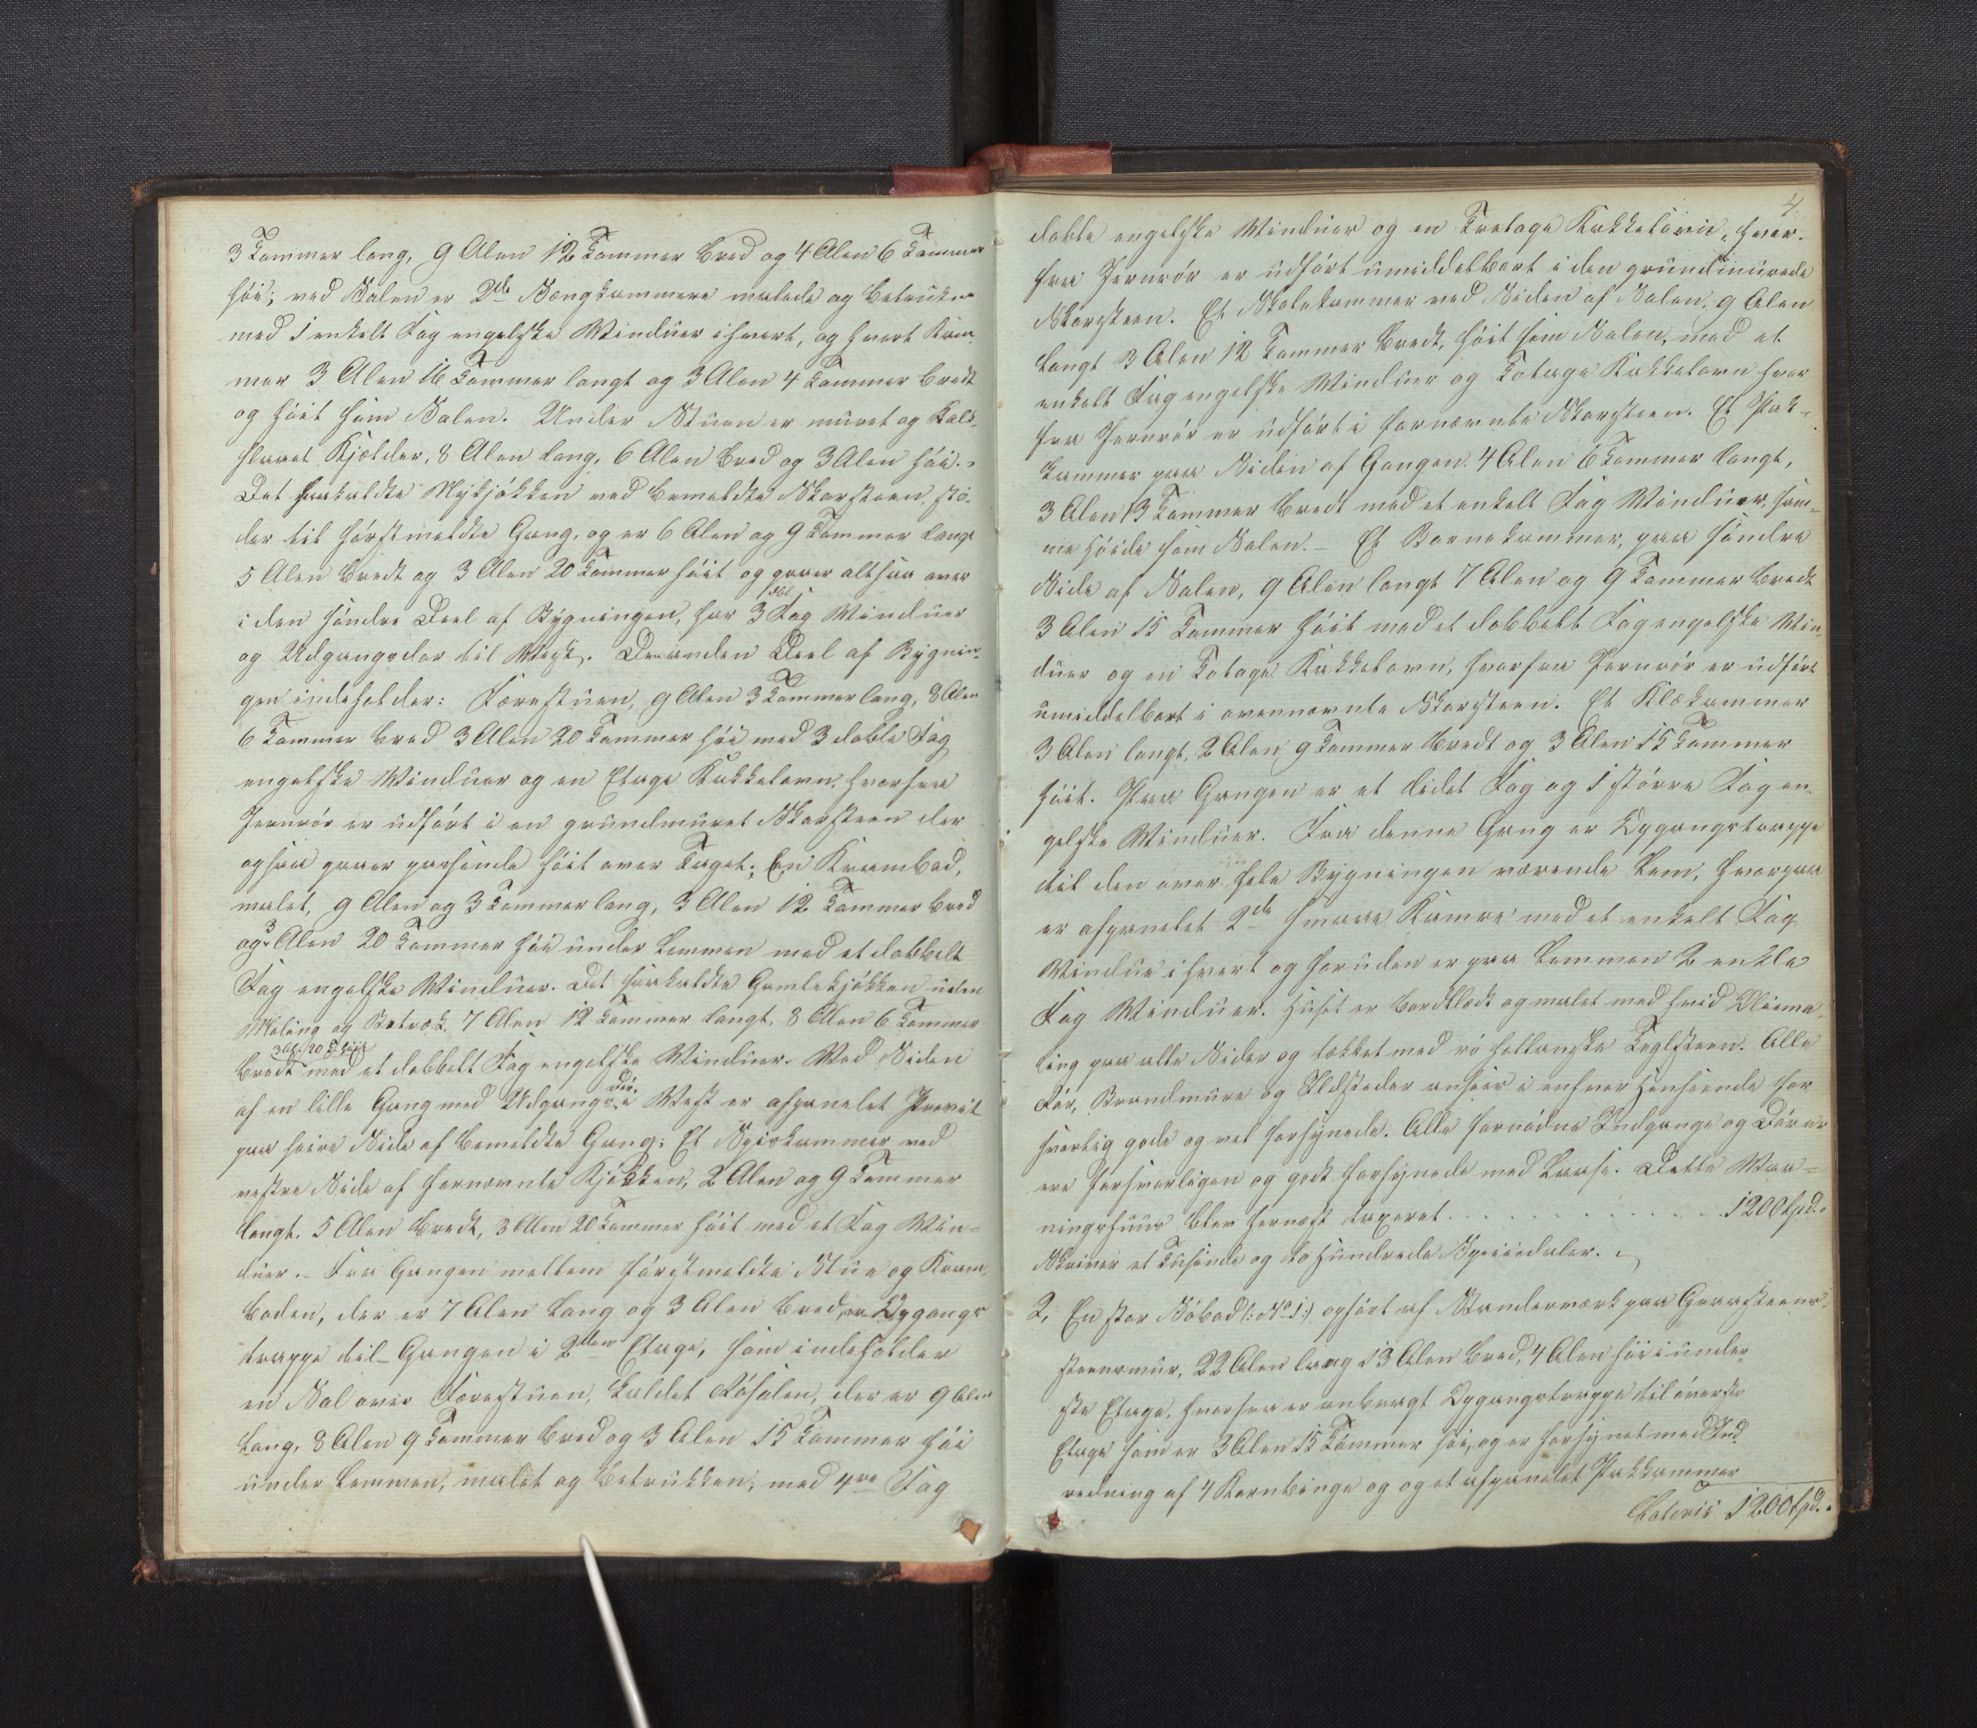 3 Tommer lang, 9 Alen 12 Tommer bred og 4 Alen 6 Tommer
høi; ved Salen er 2de Sængkammere malede og betrukne
med 1 enkelt Fag engelske Vinduer i hvert, og hvert Kam-
mer 3 Alen 16 Tommer langt og 3 Alen 4 Tommer bredt
og høit som Salen. Under Stuen er muret og kalk-
slaaet Kjælder, 8 Alen lang, 6 Alen bred og 3 Alen høi.-
Det saakaldte Nykjøkken ved bemeldte Skorsteen, stø-
der til førstmeldte Gang, og er 6 Alen og 9 Tommer langt
5 Alen bredt og 3 Alen 20 Tommer høit og gaaer altsaa over
i den søndre Deel af Bygningen, har 3 dbl Fag Vinduer
og Udgangsdør til Vest. Den anden Deel af Bygnin-
gen indeholder: Forestuen, 9 Alen 3 Tommer lang, 8 Alen
6 Tommer bred 3 Alen 20 Tommer høi med 3 doble Fag
engelske Vinduer og en Etage Kakkelovn, hvorfra
Jernrør er udført i en grundmuret Skorsteen der
ogsaa gaaer passende høit over Taget; En Krambod,
malet, 9 Alen og 3 Tommer lang, 3 Alen 12 Tommer bred
og 3 Alen 20 Tommer høi under Lemmen med et dobbelt
Fag engelske Vinduer. Det saakaldte Gamlekjøkken uden
Maling og Betræk, 7 Alen 12 Tommer langt, 8 Alen 6 Tommer
bredt 3 Al. 20 T. høit med et dobbelt Fag engelske Vinduer. Ved Siden
af en lille Gang med Udgangsdør i Vest er afpanelet Privet
paa høire Side af bemeldte Gang; Et Spiskammer ved
vestre Side af fornævnte Kjøkken, 2 Alen og 9 Tommer
langt, 5 Alen bredt, 3 Alen 20 Tommer høit med et Fag Vin-
duer.- Fra Gangen mellem førstmeldte Stue og Kram-
boden, der er 7 Alen lang og 3 Alen bred, er Opgangs
trappe til Gangen i 2den Etage, som indeholder
en Sal over Forestuen, kaldet Røsalen, der er 9 Alen
lang, 8 Alen 9 Tommer bred og 3 Alen 15 Tommer høi
under Lemmen, malet og betrukken, med 4re Fag
4
doble engelske Vinduer og en Toetages Kakkelovn, hvor-
fra Jernrør er udført umiddelbart i den grundmurede
Skorsteen. Et Skolekammer ved Siden af Salen, 9 Alen
langt 3 Alen 12 Tommer bredt, høit som Salen, med et
enkelt Fag engelske Vinduer og Toetage Kakkelovn hvor
fra Jernrør er udført i fornævnte Skorsteen. Et Pak-
kammer paa Siden af Gangen, 4 Alen 6 Tommer langt,
3 Alen 13 Tommer bredt med et enkelt Fag Vinduer, sam-
me høide som Salen.- Et Barnekammer, paa søndre
Side af Salen, 9 Alen langt 7 Alen og 9 Tommer bredt
3 Alen 15 Tommer høit med et dobbelt Fag engelske Vin-
duer og en Toetage Kakkelovn, hvorfra Jernrør er udført
umiddelbart i ovennævnte Skorsteen. Et Klækammer
3 Alen langt, 2 Alen 9 Tommer bredt og 3 Alen 15 Tommer
høit. Paa Gangen er et lidet Fag og 1 større Fag en-
gelske Vinduer. Fra denne Gang er Opgangstrappe
til den over hele Bygningen værende Lem, hvorpaa
er afpanelet 2de smaae Kamre med et enkelt Fag
Vindue i hvert og foruden er paa Lemmen 2 enkle
Fag Vinduer. Huset er bordklædt og malet med hvid Oliema-
ling paa alle Sider og tækket med rø hollanske Teglsteen. Alle
Rør, Brandmure og Ildsteder ansees i enhver Henseende for-
svarlig gode og vel forsynede. Alle fornødne Indgange og Dører
ere forsvarligen og godt forsynede med Laase. Dette Vaa-
ningshuus blev hernæst taxeret . . . . . . . . . . 1200 spd.
Skriver et tusinde og to Hundrede Speciedaler.
2, En stor Søbod (: No 1:) opført af Standerværk paa Graasteens-
steensmur, 22 Alen lang 13 Alen bred, 4 Alen høi i under-
ste Etage, hvorfra er anbragt Opgangstrappe til øverste
Etage som er 3 Alen 15 Tommer høi, og er forsynet med Ind-
redning af 4 Kornbinge og og et afpanelet Pakkammer
Lateris 1200 spd.